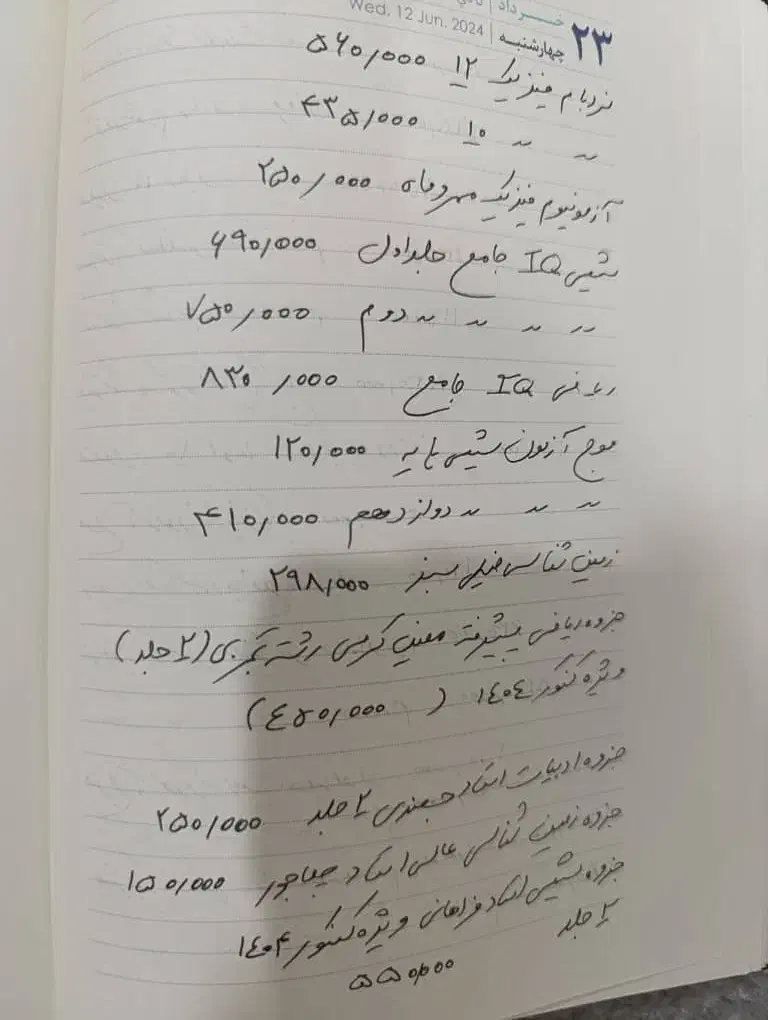 ۲۳ خرداد
چهارشنبه | Wed. 12 Jun. 2024
نردبام فیزیک ۱۲ ۵۶۰/۰۰۰
〃 〃 ۱۰ ۴۳۵/۰۰۰
آزمونیوم فیزیک مهروماه ۲۵۰/۰۰۰
شیمی IQ جامع جلد اول ۶۹۰/۰۰۰
〃 〃 〃 〃 دوم ۷۵۰/۰۰۰
ریاضی IQ جامع ۸۳۰/۰۰۰
موج آزمون شیمی پایه ۱۲۰/۰۰۰
〃 〃 〃 دوازدهم ۴۱۰/۰۰۰
زمین شناسی خیلی سبز ۲۹۸/۰۰۰
جزوه ریاضی پیشرفته معین کرمی رشته تجربی (۲ جلد)
ویژه کنکور ۱۴۰٤ ) (٤۵۰/۰۰۰
جزوه ادبیات استاد ۲ جلد ۲۵۰/۰۰۰
جزوه زمین شناسی عالی استاد ۱۵۰/۰۰۰
جزوه شیمی استاد فراهانی ویژه کنکور ۱٤۰۴
۲ جلد
۵۵۰/۰۰۰